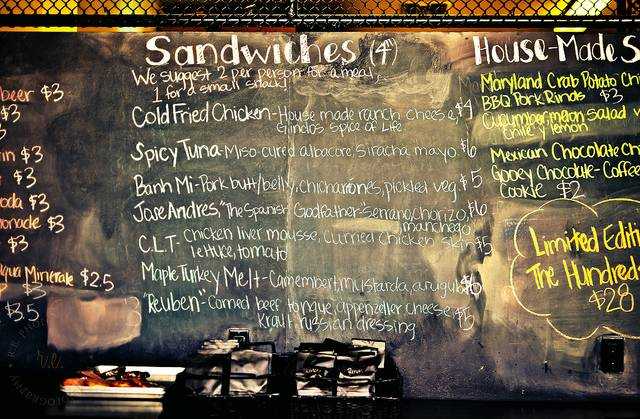 Sandwiches (4")
We suggest 2 per person for a meal,
1 for a small snack!
Cold Fried Chicken-House made ranch cheese, $4
Spice of Life
Spicy Tuna-Miso-cured albacore, Siracha mayo $6
Banh Mi-Pork butt/belly, chicharrones, pickled veg $5
Jose Andres, "The Spanish Godfather-Serrano, chorizo, $6
manchego
C.L.T.-Chicken liver mousse, curried chicken skin $5
lettuce, tomato
Maple Turkey Melt-Camembert, mustarda, arugula $6
"Reuben"-Corned beef tongue, appenzeller cheese $5
kraut, russian dressing
beer $3
$3
in $3
$3
oda $3
onade $3
$3
qua Minerale $2.5
$3
$3.5
House-Made S
Maryland Crab Potato Ch
BBQ Pork Rinds $3
Cucumber, melon salad
chile y lemon
Mexican Chocolate Ch
Gooey Chocolate-Coffee
Cookie $2
Limited Editi
The Hundred
$28